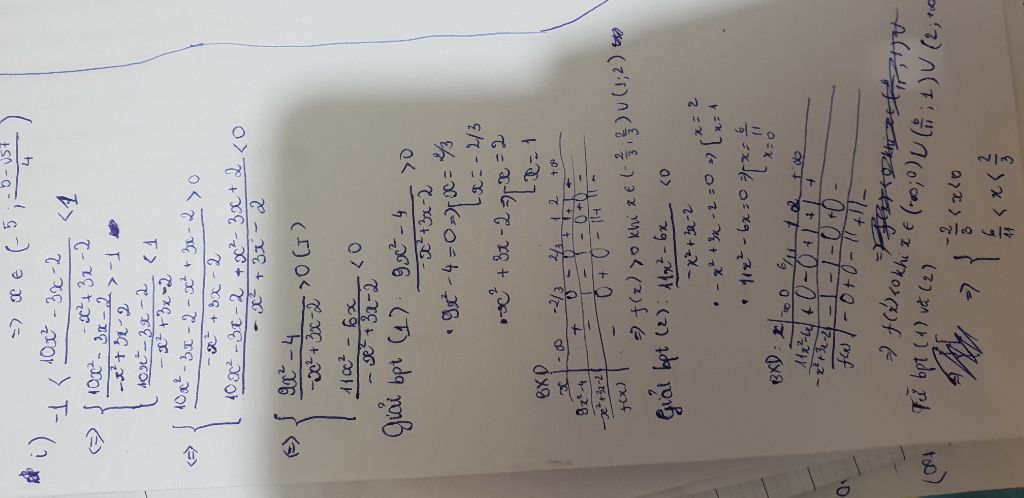 => x ∈ (-5; (-5-√57)/4)
i) -1 < (10x² - 3x - 2)/(-x² + 3x - 2) < 1
<=> { (10x² - 3x - 2)/(-x² + 3x - 2) > -1
(10x² - 3x - 2)/(-x² + 3x - 2) < 1
<=> { (10x² - 3x - 2 - x² + 3x - 2)/(-x² + 3x - 2) > 0
(10x² - 3x - 2 + x² - 3x + 2)/(-x² + 3x - 2) < 0
<=> { (9x² - 4)/(-x² + 3x - 2) > 0 (I)
(11x² - 6x)/(-x² + 3x - 2) < 0
Giải bpt (1): (9x² - 4)/(-x² + 3x - 2) > 0
• 9x² - 4 = 0 => [ x = 2/3
x = -2/3
• -x² + 3x - 2 => [ x = 2
x = 1
BXD
x | -∞ -2/3 2/3 1 2 +∞
9x² - 4 | + 0 - 0 + | + | +
-x² + 3x - 2 | - | - | - 0 + 0 -
f(x) | - 0 + 0 - || + || -
=> f(x) > 0 khi x ∈ (-2/3; 2/3) ∪ (1; 2)
Giải bpt (2): (11x² - 6x)/(-x² + 3x - 2) < 0
• -x² + 3x - 2 = 0 => [ x = 2
x = 1
• 11x² - 6x = 0 => [ x = 6/11
x = 0
BXD: x | -∞ 0 6/11 1 2 +∞
11x² - 6x | + 0 - 0 + | + | +
-x² + 3x - 2 | - | - | - 0 + 0 -
f(x) | - 0 + 0 - || + || -
=> f(x) < 0 khi x ∈ (-∞; 0) ∪ (6/11; 1) ∪ (2; +∞
Từ bpt (1) và (2)
=> { -2/3 < x < 0
6/11 < x < 2/3